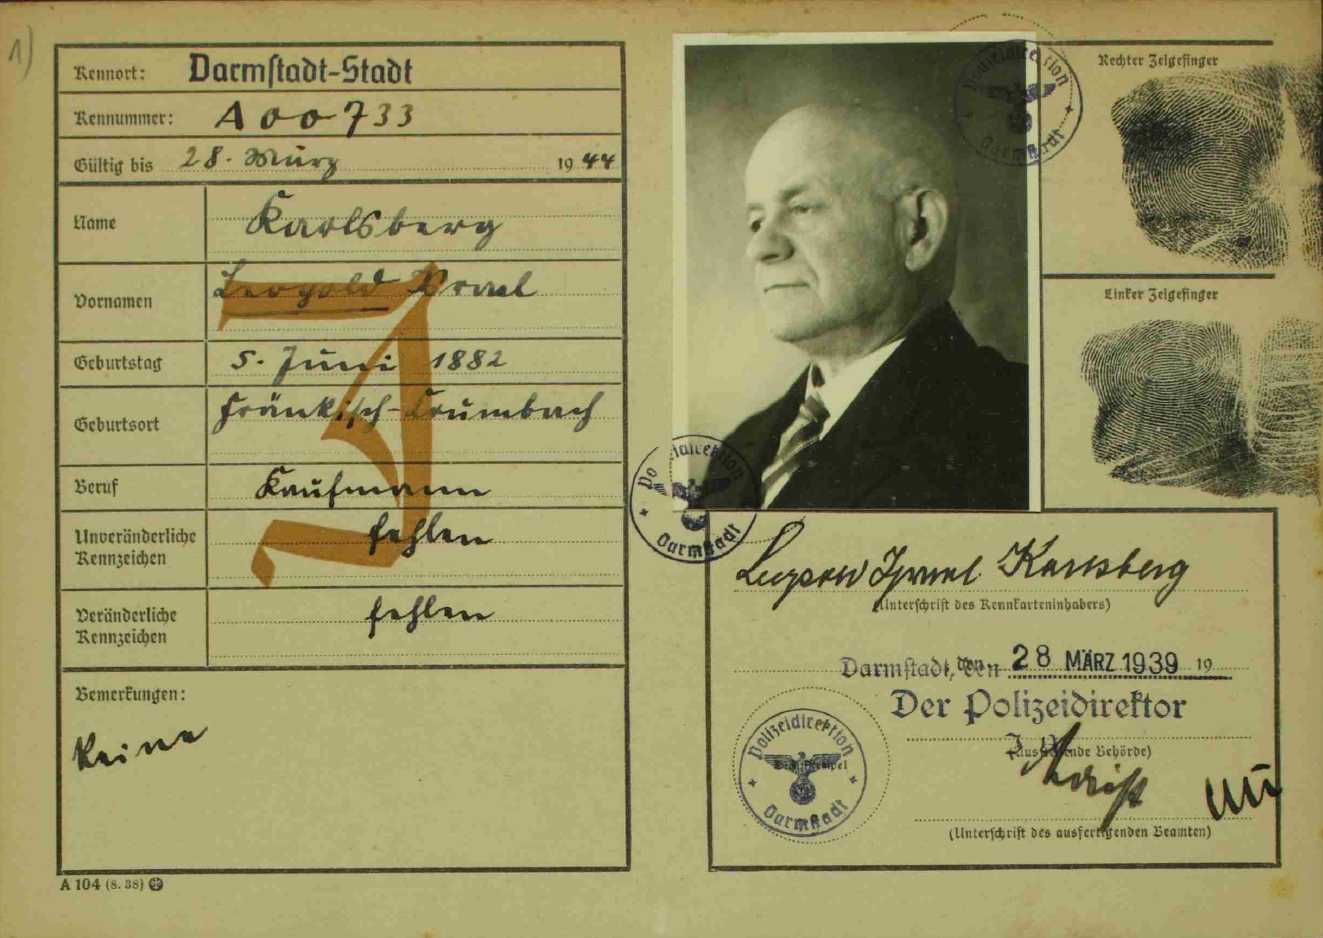 1)
Kennort: Darmstadt-Stadt
Kennummer: A 00733
Gültig bis 28. März 1944
Name Karlsberg
Vornamen Leopold Israel
Geburtstag 5. Juni 1882
Geburtsort Fränkisch-Crumbach
Beruf Kaufmann
Unveränderliche Kennzeichen fehlen
Veränderliche Kennzeichen fehlen
J
Bemerkungen:
Keine
A 104 (8. 38)
Polizeidirektion
Darmstadt
Polizeidirektion
Darmstadt
Rechter Zeigefinger
Linker Zeigefinger
Leopold Israel Karlsberg
(Unterschrift des Kennkarteninhabers)
Darmstadt, den 28 MÄRZ 1939 19
Der Polizeidirektor
(Ausstellende Behörde)
Polizeidirektion
Darmstadt
(Unterschrift des ausfertigenden Beamten)